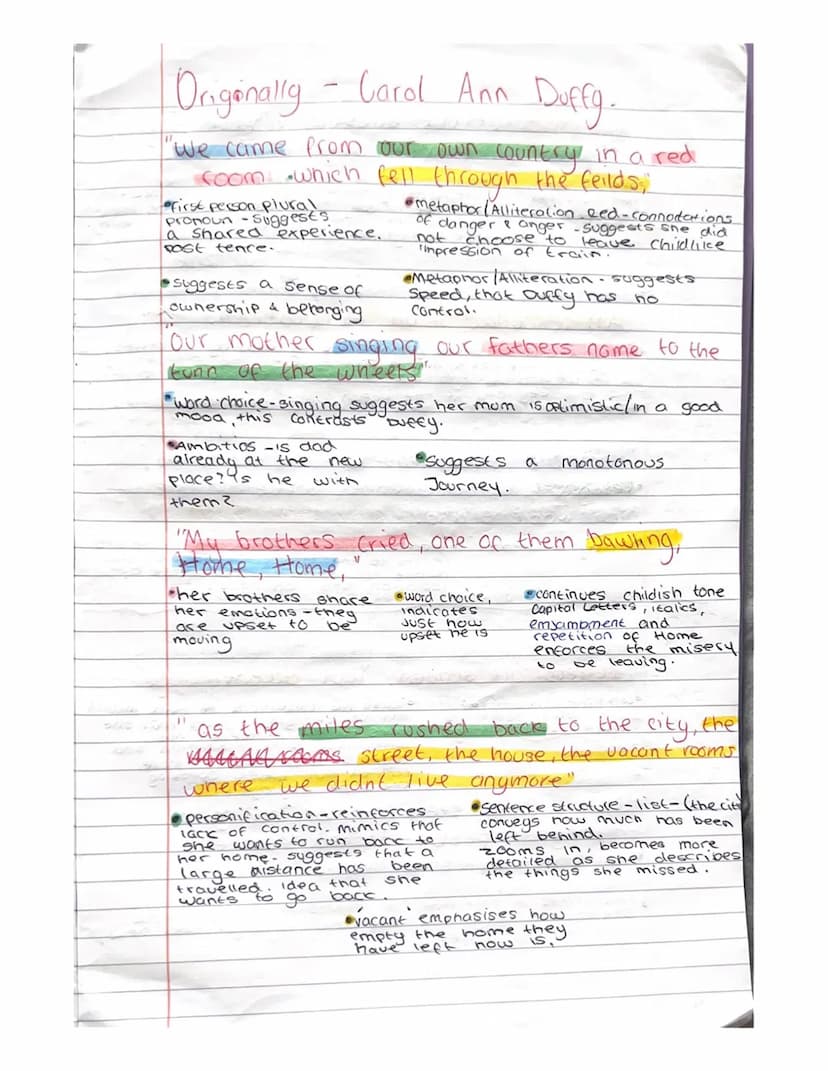 Originally - Carol Ann Duffy.
"We came from our own country in a red
room which fell through the feilds,"
•first person plural
pronoun - suggests
a shared experience.
past tence.
•metaphor/Alliteration red - connotations
of danger & anger - suggests she did
not choose to leave childlike
impression of train.
•suggests a sense of
ownership & belonging
•Metaphor/Alliteration - suggests
speed, that Duffy has no
control.
"Our mother singing our fathers name to the
turn of the wheels".
•word choice - singing suggests her mum is optimistic/in a good
mood, this contrasts Duffy.
•Ambitios - is dad
already at the new
place? is he with
them?
•suggests a monotonous
Journey.
"My brothers cried, one of them bawling,
Home, Home,"
•her brothers share
her emotions - they
are upset to be
moving
•word choice,
indicates
just how
upset he is
•continues childish tone
capitol Letters, italics,
emjambment and
repetition of Home
enforces the misery
to be leaving.
"as the miles rushed back to the city, the
street, the house, the vacant rooms
where we didnt live anymore"
•personification - reinforces
lack of control. mimics that
she wants to run back to
her home - suggests that a
large distance has been
travelled. idea that she
wants to go back.
•sentence structure - list - (the cit
conveys how much has been
left behind.
zooms in, becomes more
detailed as she describes
the things she missed.
•'vacant' emphasises how
empty the home they
have left now is.